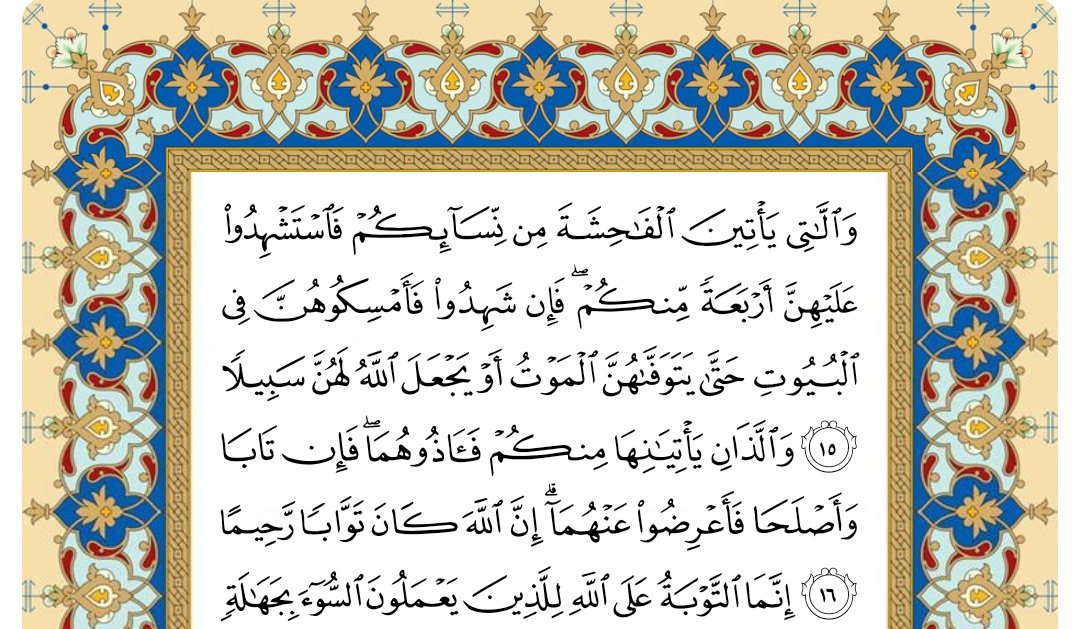 وَٱلَّٰتِى يَأْتِينَ ٱلْفَٰحِشَةَ مِن نِّسَآئِكُمْ فَٱسْتَشْهِدُوا۟
عَلَيْهِنَّ أَرْبَعَةً مِّنكُمْ ۖ فَإِن شَهِدُوا۟ فَأَمْسِكُوهُنَّ فِى
ٱلْبُيُوتِ حَتَّىٰ يَتَوَفَّىٰهُنَّ ٱلْمَوْتُ أَوْ يَجْعَلَ ٱللَّهُ لَهُنَّ سَبِيلًا
١٥ وَٱلَّذَانِ يَأْتِيَٰنِهَا مِنكُمْ فَـَٔاذُوهُمَا ۖ فَإِن تَابَا
وَأَصْلَحَا فَأَعْرِضُوا۟ عَنْهُمَآ ۗ إِنَّ ٱللَّهَ كَانَ تَوَّابًا رَّحِيمًا
١٦ إِنَّمَا ٱلتَّوْبَةُ عَلَى ٱللَّهِ لِلَّذِينَ يَعْمَلُونَ ٱلسُّوٓءَ بِجَهَٰلَةٍ